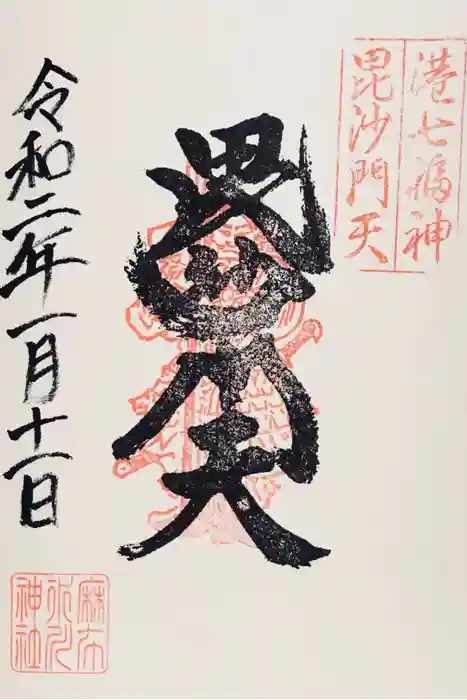 港七福神
毘沙門天
毘沙門天
令和二年一月十一日
麻布
氷川
神社